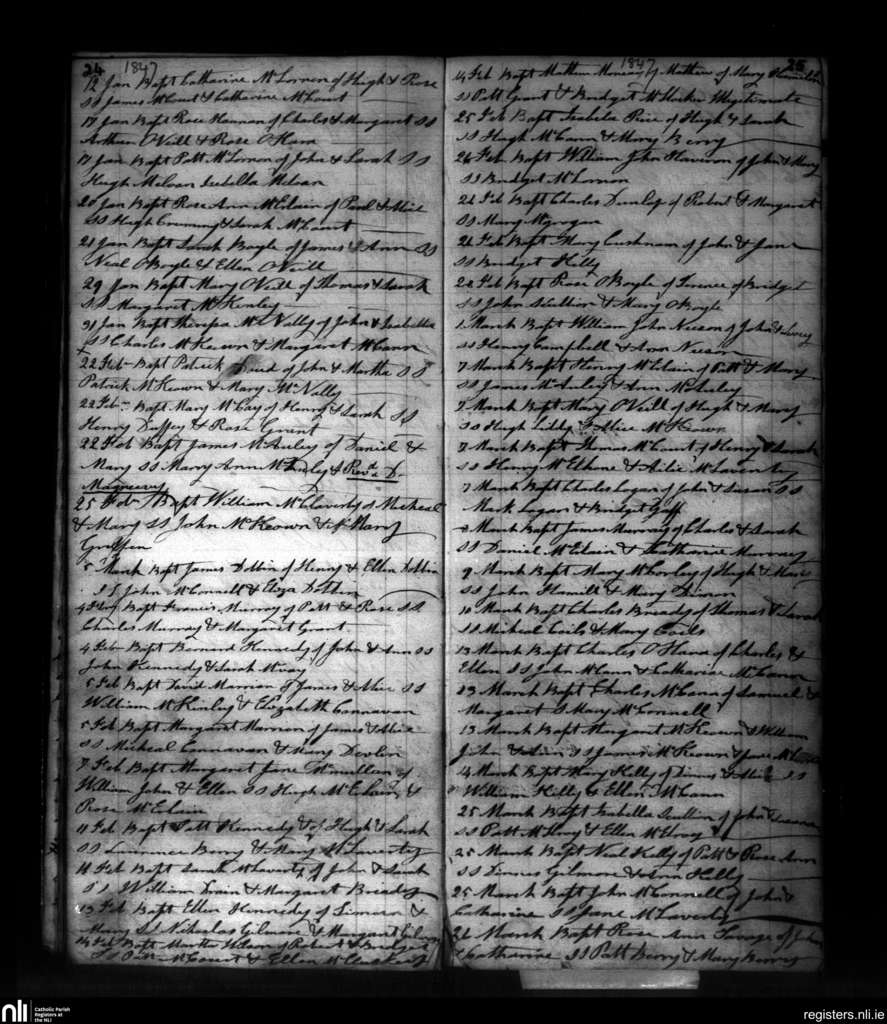 24 1847
12 Jan Bapt Catharine McLornon of Hugh & Rose
SS James McCourt & Catharine McCourt
17 Jan Bapt Rose Hannan of Charles & Margaret SS
Arthur O'Neill & Rose O'Hara
17 Jan Bapt Patt McLornon of John & Sarah SS
Hugh Isabella
20 Jan Bapt Rose Ann McErlain of Paul & Alice
SS Hugh & Sarah McCourt
21 Jan Bapt Sarah Boyle of James & Ann SS
Neal O'Boyle & Ellen O'Neill
29 Jan Bapt Mary O'Neill of Thomas & Sarah
SS Margaret McKinley
31 Jan Bapt McNally of John & Isabella
SS Charles McKeown & Margaret McCann
22 Feb Bapt Patrick of John & Martha SS
Patrick McKeown & Mary McNally
22 Feb Bapt Mary McCay of Henry & Sarah SS
Henry Duffey & Rose Grant
22 Feb Bapt James McAuley of Daniel &
Mary SS Mary Ann & Revd D
Magreevy
25 Feb Bapt William McClaverty of Micheal
& Mary SS John McKeown & Mary
Griffen
5 March Bapt James Dobbin of Henry & Ellen Dobbin
SS John McConnell & Eliza Dobbin
4 Feb Bapt Francis Murray of Patt & Rose SS
Charles Murray & Margaret Grant
4 Feb Bapt Bernard Kennedy of John & Ann SS
John Kennedy & Sarah
5 Feb Bapt David Marrion of James & Alice SS
William McKinley & Elizabeth Cannavan
5 Feb Bapt Margaret Marrion of James & Alice
SS Micheal Cannavan & Mary Devlin
7 Feb Bapt Margaret Jane McMullan of
William John & Ellen SS Hugh McErlain &
Rose McErlain
11 Feb Bapt Patt Kennedy of Hugh & Sarah
SS Laurance Berry & Mary McLaverty
11 Feb Bapt Sarah McLaverty of John & Sarah
SS William & Margaret Bready
13 Feb Bapt Ellen Kennedy of &
Mary SS Nicholas Gilmore & Margaret
14 Feb Bapt Martha of Robert & Bridget
SS Patt McCourt & Ellen
1847 25
14 Feb Bapt Mathew of Mathew & Mary Hamilton
SS Patt Grant & Bridget Illegitimate
25 Feb Bapt Isabella of Hugh & Sarah
SS Hugh McCann & Mary Berry
26 Feb Bapt William John of John & Mary
SS Bridget McLornon
26 Feb Bapt Charles Dunlop of Robert & Margaret
SS Mary Mgrogan
26 Feb Bapt Mary Cushnan of John & Jane
SS Bridget Kelly
28 Feb Bapt Rose O'Boyle of Terence & Bridget
SS John Scullion & Mary O'Boyle
1 March Bapt William John Neeson of John & Lucy
SS Henry Campbell & Ann Neeson
7 March Bapt Henry McErlain of Patt & Mary
SS James McAuley & Ann McAuley
7 March Bapt Mary O'Neill of Hugh & Mary
SS Hugh Liddy & Alice McKeown
7 March Bapt Thomas McCourt of Henry & Sarah
SS Henry McElhone & Alice McLaverty
7 March Bapt Charles Logan of John & Susan SS
Mark Logan & Bridget Goff
March Bapt James Murray of Charles & Sarah
SS Daniel McErlain & Catharine Murray
9 March Bapt Mary McCorley of Hugh & Mary
SS John Hamill & Mary
10 March Bapt Charles Bready of Thomas & Sarah
SS Micheal Coils & Mary Coils
13 March Bapt Charles O'Hara of Charles &
Ellen SS John McCann & Catharine McCann
13 March Bapt Charles McCana of Samuel &
Margaret S Mary McConnell
13 March Bapt Margaret McKeown & William
John & SS James McKeown & Jane
14 March Bapt Mary Kelly of Dinnis & Alice SS
William Kelly & Ellen McCann
25 March Bapt Isabella Scullion of John &
SS Patt McIlroy & Ellen McElroy
25 March Bapt Neal Kelly of Patt & Rose Ann
SS Dinnes Gilmore & Ann Kelly
25 March Bapt John McConnell of John &
Catharine SS Jane McLaverty
26 March Bapt Rose Ann Savage of John
& Catharine SS Patt Berry & Mary Berry
nli
Catholic Parish
Registers at
the NLI
registers.nli.ie